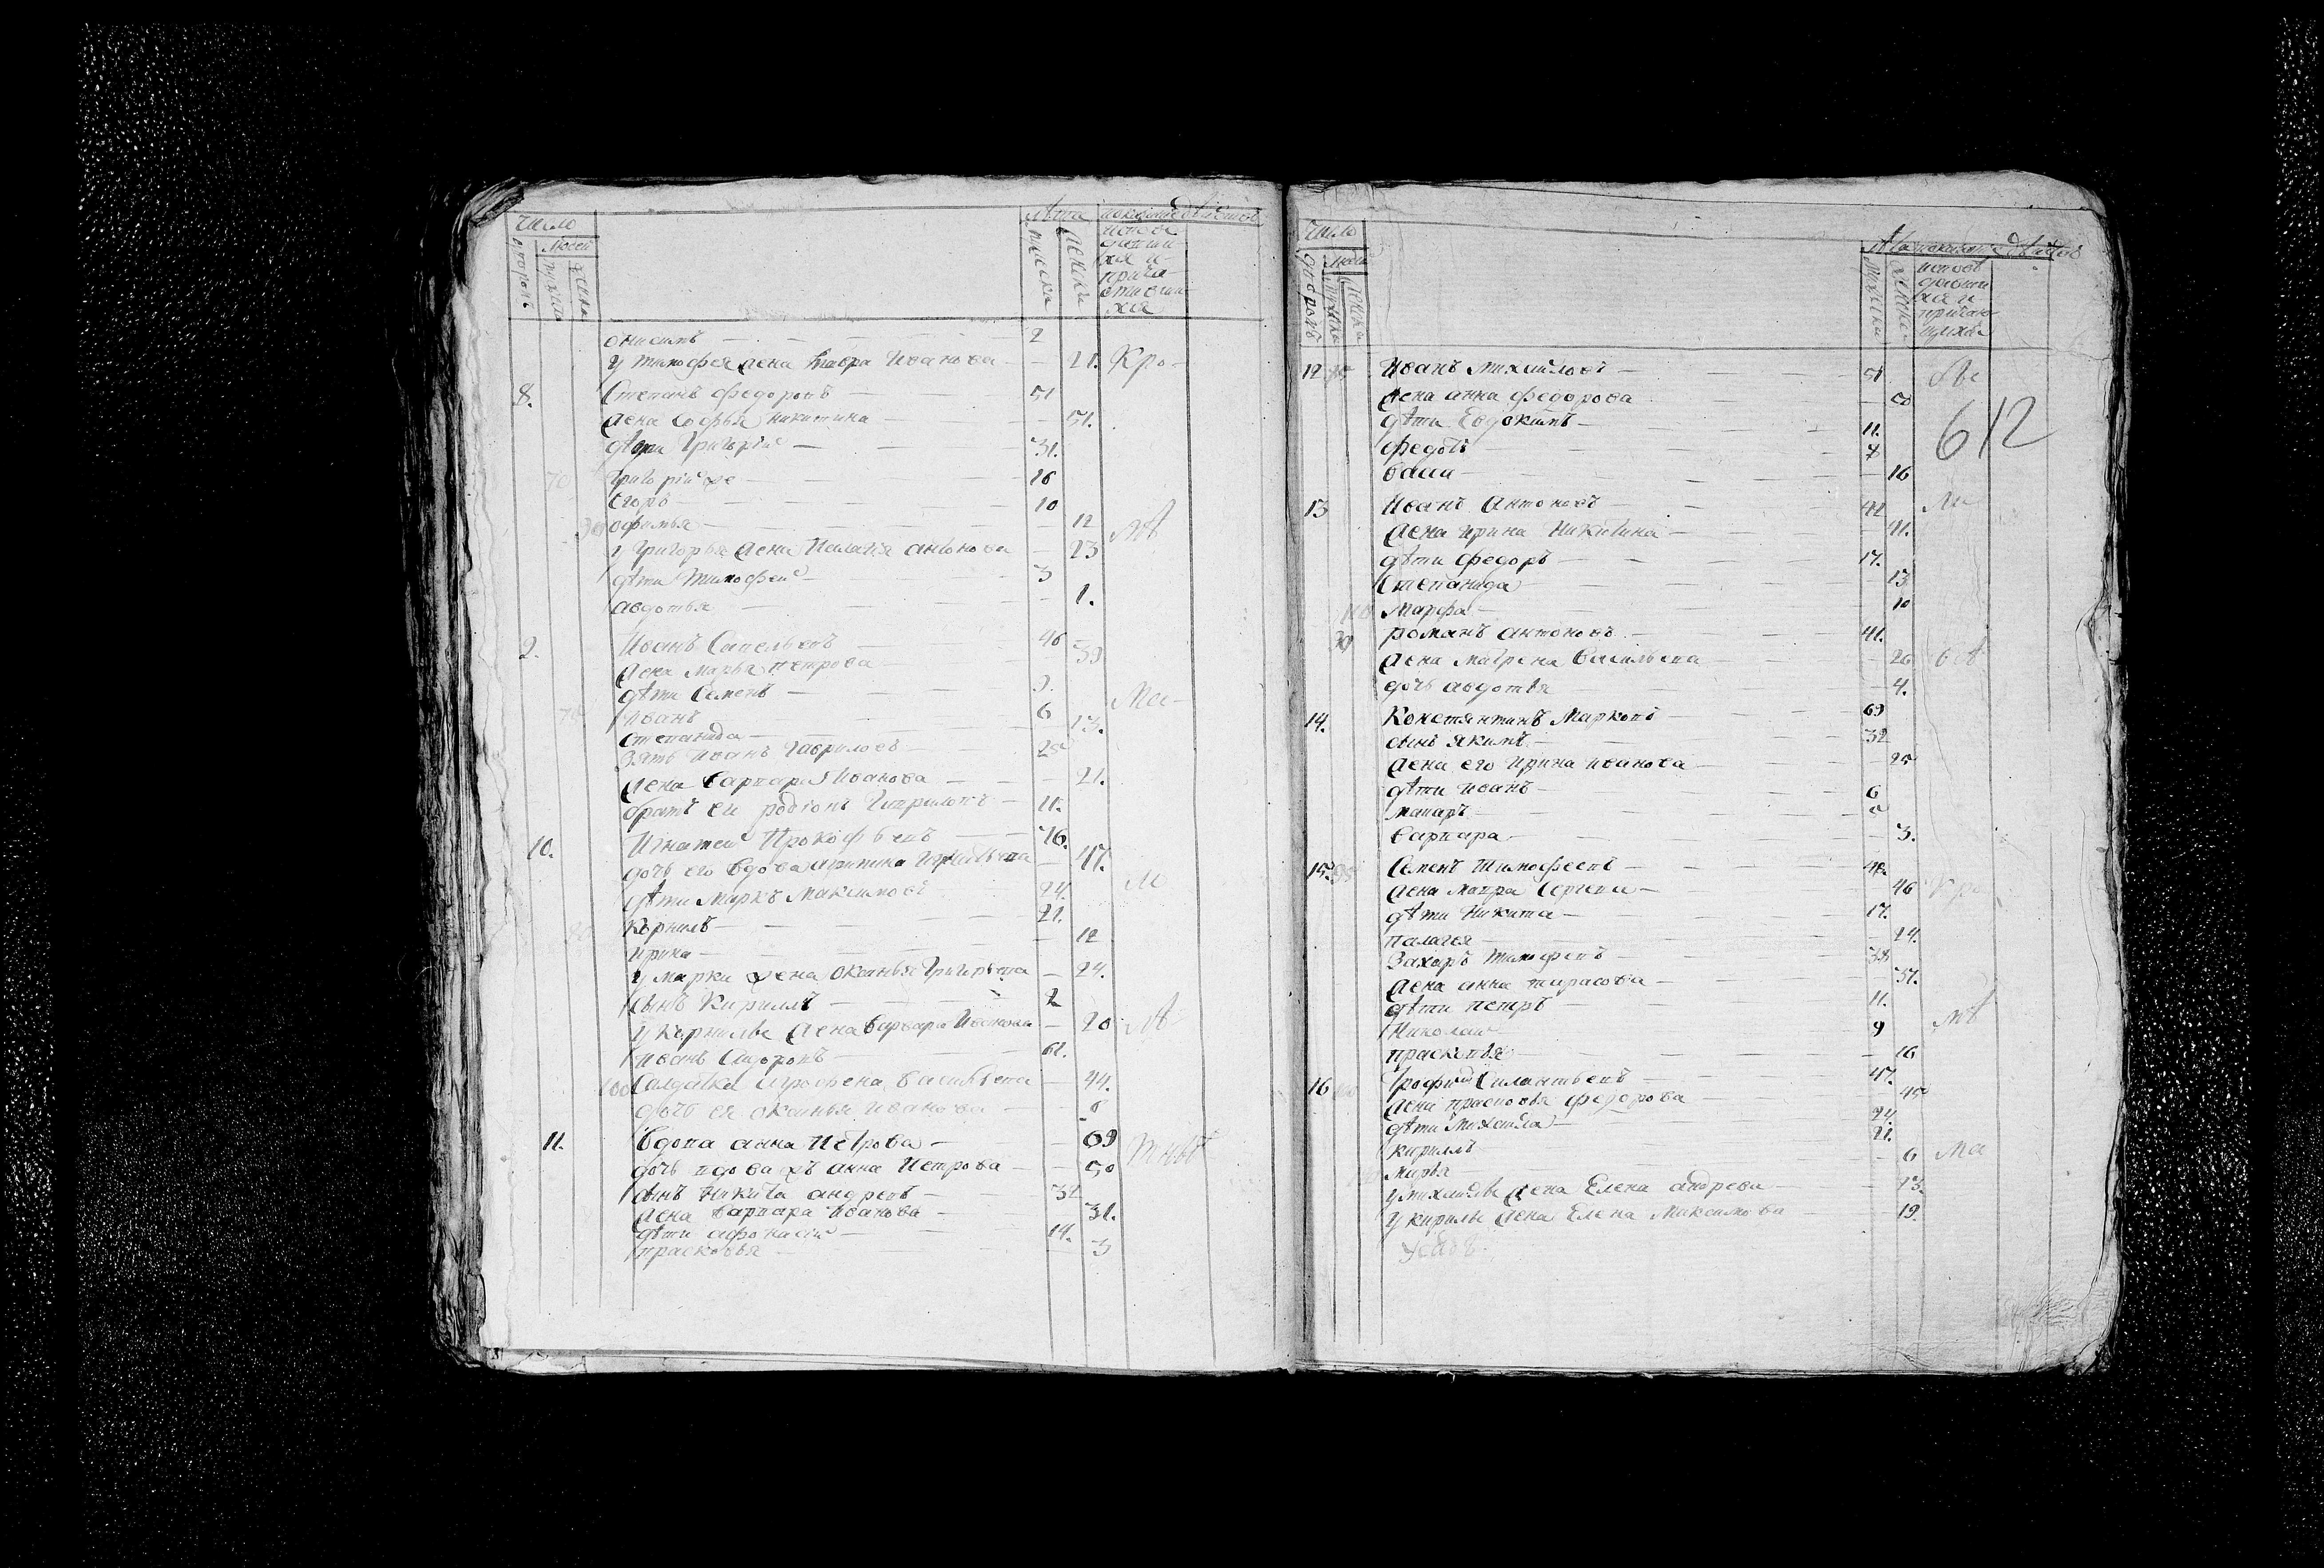 Число
Людей
дворовъ
мужска
женска
лѣта
мужска
женска
показание дѣйства
испове
давши
хся и
прича
стивши
хся
онисимъ — 2
у тимофея жена Мавра Иванова — 21. Кро-
8. Степанъ федоровъ — 51
жена Софья никитина — 51.
дѣти Григорiй — 31.
Григорiй же — 16
Егоръ — 10
офимья — 12
у Григорья жена Пелагея антонова — 23
дѣти Тимофей — 3
авдотья — 1.
9. Иванъ Савельевъ — 46
жена марья петрова — 39
дѣти Семенъ — 9.
Иванъ — 6
степанида — 13.
зять Иванъ Гавриловъ — 25
жена варвара Иванова — 21.
братъ ея родiонъ Гавриловъ — 11.
10. Игнатей Прокофьевъ — 76.
дочь его вдова — 47.
дѣти Маркъ Максимовъ — 24.
Корнилъ — 21.
ирина — 12
у марка жена оксинья Григорьева — 24.
сынъ Кириллъ — 2
у Корнилы жена варвара Иванова — 20
иванъ Сидоровъ — 61.
100 Салдатка агрофена васильева — 44.
дочь ея оксинья иванова — 8
11. Вдова анна Петрова — 69
дочь вдова жъ анна Петрова — 50
сынъ Никита андреевъ — 32
жена варвара иванова — 31.
дѣти афонасiй — 14.
прасковья — 3
Число
Людей
дворовъ
мужска
женска
лѣта
показание дѣйства
мужска
женска
испов
давши
хся и
причас
612
12 Иванъ Михайловъ — 51
жена анна федорова — 50
дѣти Евдокимъ — 11.
федотъ — 8
васи — 16
13 Иванъ Антоновъ — 42
жена ирина Никитина — 41.
дѣти федоръ — 17.
Степанида — 13
Марфа — 10
романъ антоновъ — 41.
жена матрена васильева — 26
дочь авдотья — 4.
14. Констянтинъ Марковъ — 69
сынъ якимъ — 32
жена его ирина иванова — 25
дѣти иванъ — 6
макаръ — 5
варвара — 3.
15. Семенъ тимофеевъ — 48
жена мавра Сергеева — 46
дѣти Никита — 17.
палагея — 24.
Захаръ тимофеевъ — 38
жена анна тарасова — 37.
дѣти петръ — 11.
Николай — 9
прасковья — 16
16 Трофимъ Силантьевъ — 47.
жена прасковья федорова — 45
дѣти Михайла — 24.
кириллъ — 21.
марья — 6 Ма
у михайлы жена Елена андреева — 23.
у кирилы жена Елена Максимова — 19.